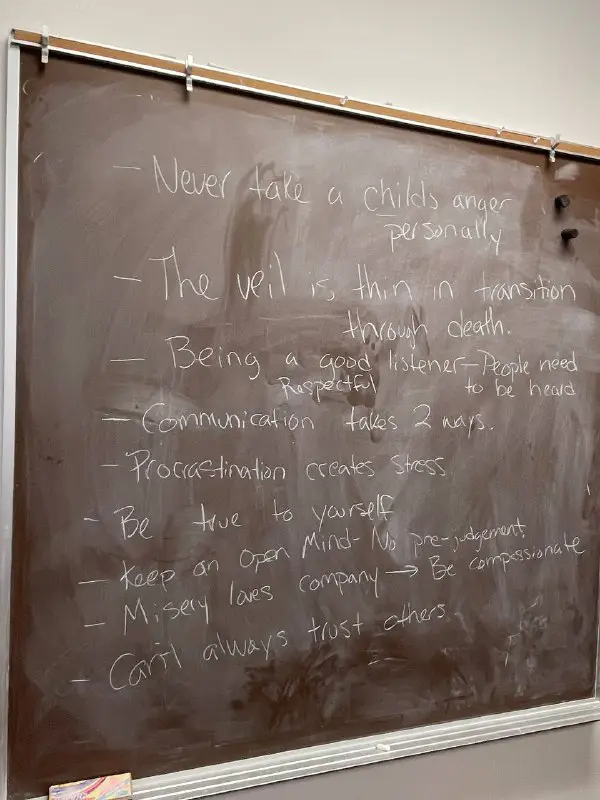 - Never take a childs anger
personally
- The veil is thin in transition
through death.
- Being a good listener - People need
Respectful to be heard
- Communication takes 2 ways.
- Procrastination creates stress
- Be true to yourself
- Keep an open Mind - No pre-judgement
- Misery loves company → Be compassionate
- Can't always trust others.